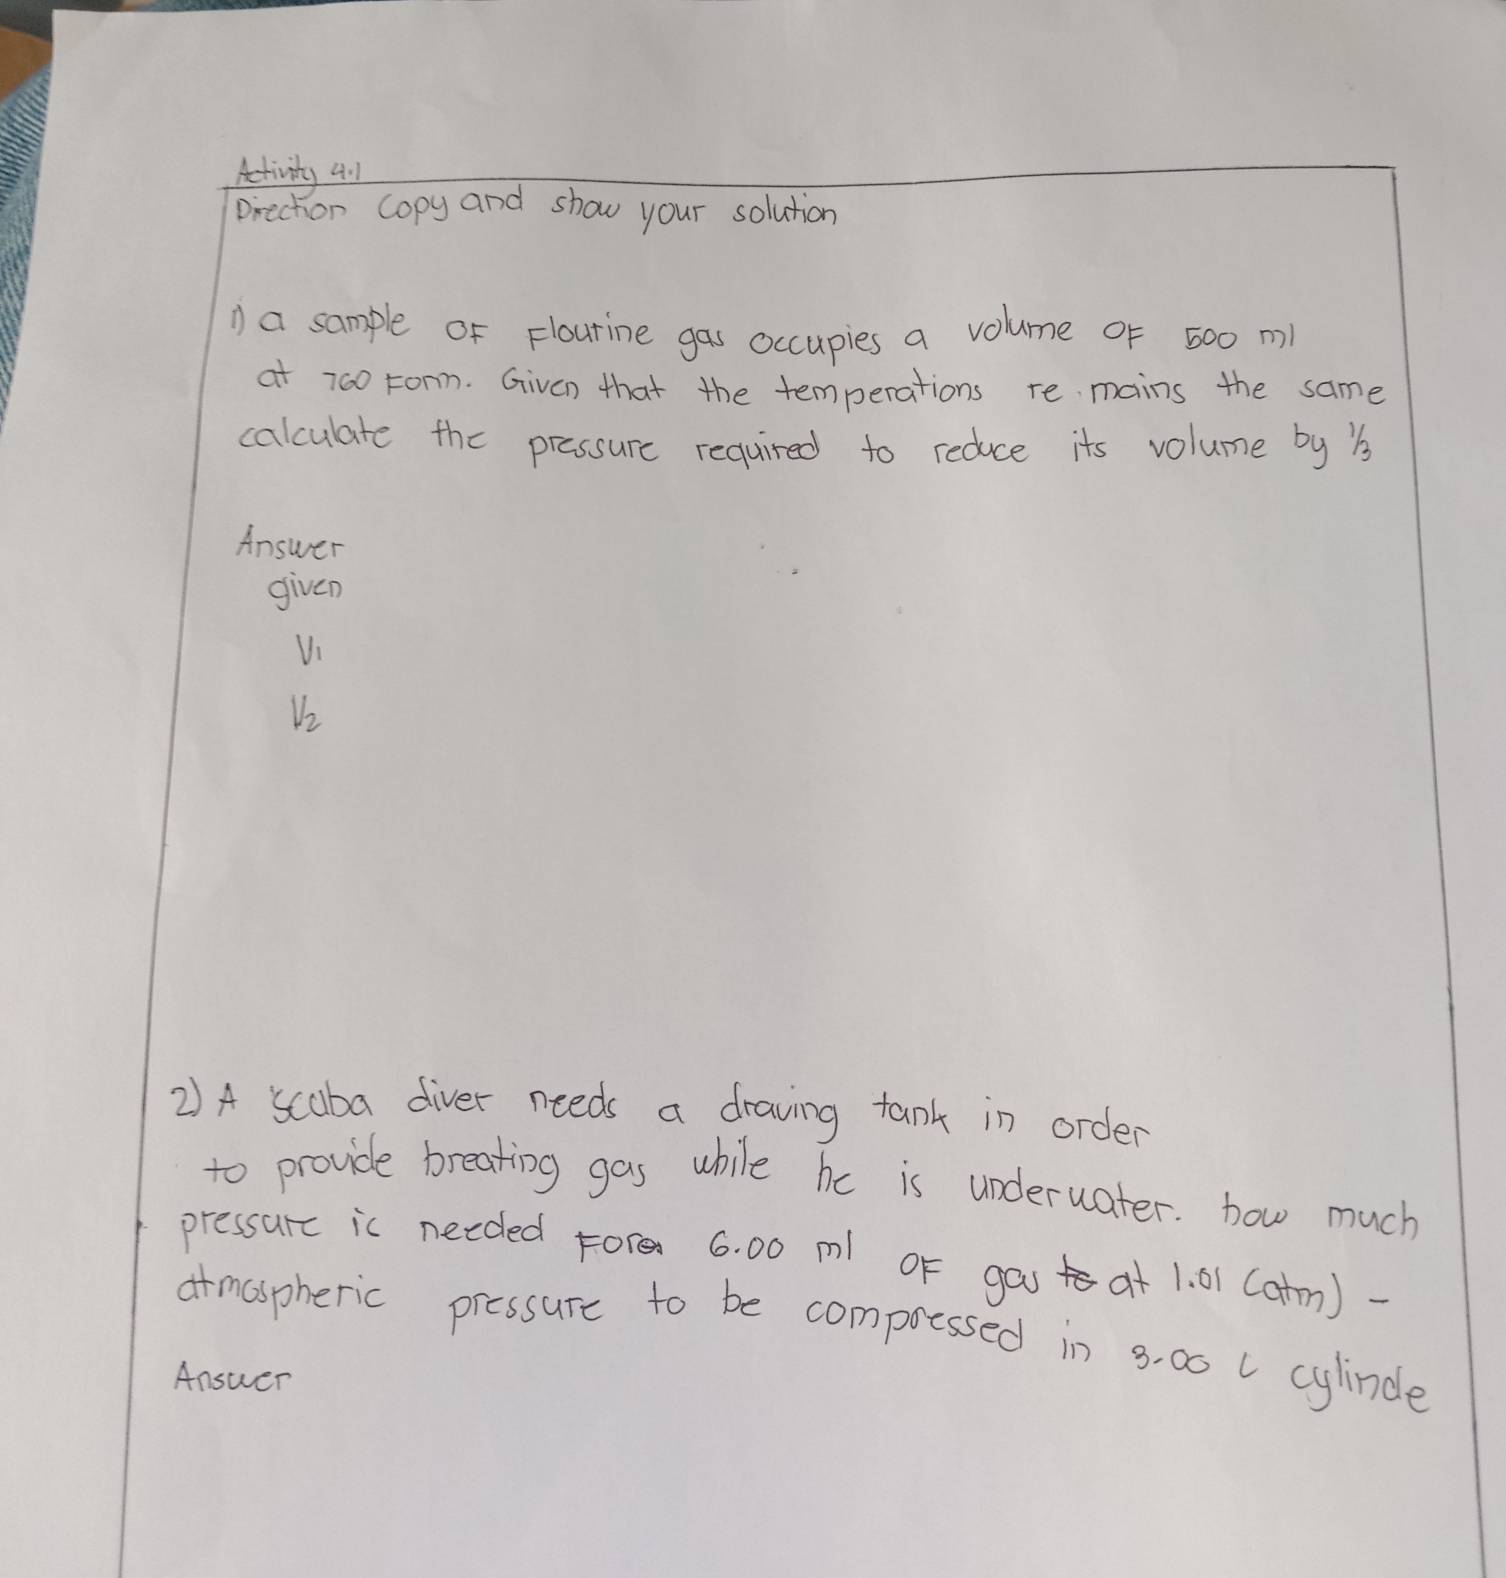 Activity 4.1
Direction copy and show your solution
1) a sample OF Flourine gas occupies a volume OF 500 ml
at 760 Form. Given that the temperations re mains the same
calculate the pressure required to reduce its volume by 1/3
Answer
given
V1
V2
2) A scuba diver needs a draving tank in order
to provide breating gas while he is underwater. how much
pressure is needed For 6.00 ml OF gas at 1.01 (atm) -
atmospheric pressure to be compressed in 3.00 L cylinde
Answer